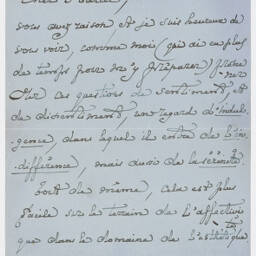 vous avez raison, et je suis heureux de
vous voir, comme moi (qui ai eu plus
de temps pour m'y préparer) jeter
sur les questions de sentiment, et
de dissentiment, un regard d'indul-
gence, dans lequel il entre de l'in-
différence, mais aussi de la sérénité.
Tout de même, cela est plus
facile sur le terrain de l'affectivi-
té
que dans le domaine de l'esthétique